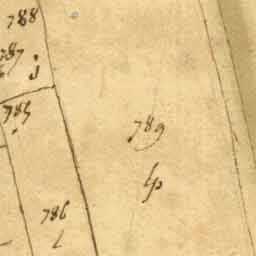 788
787
785
789
786